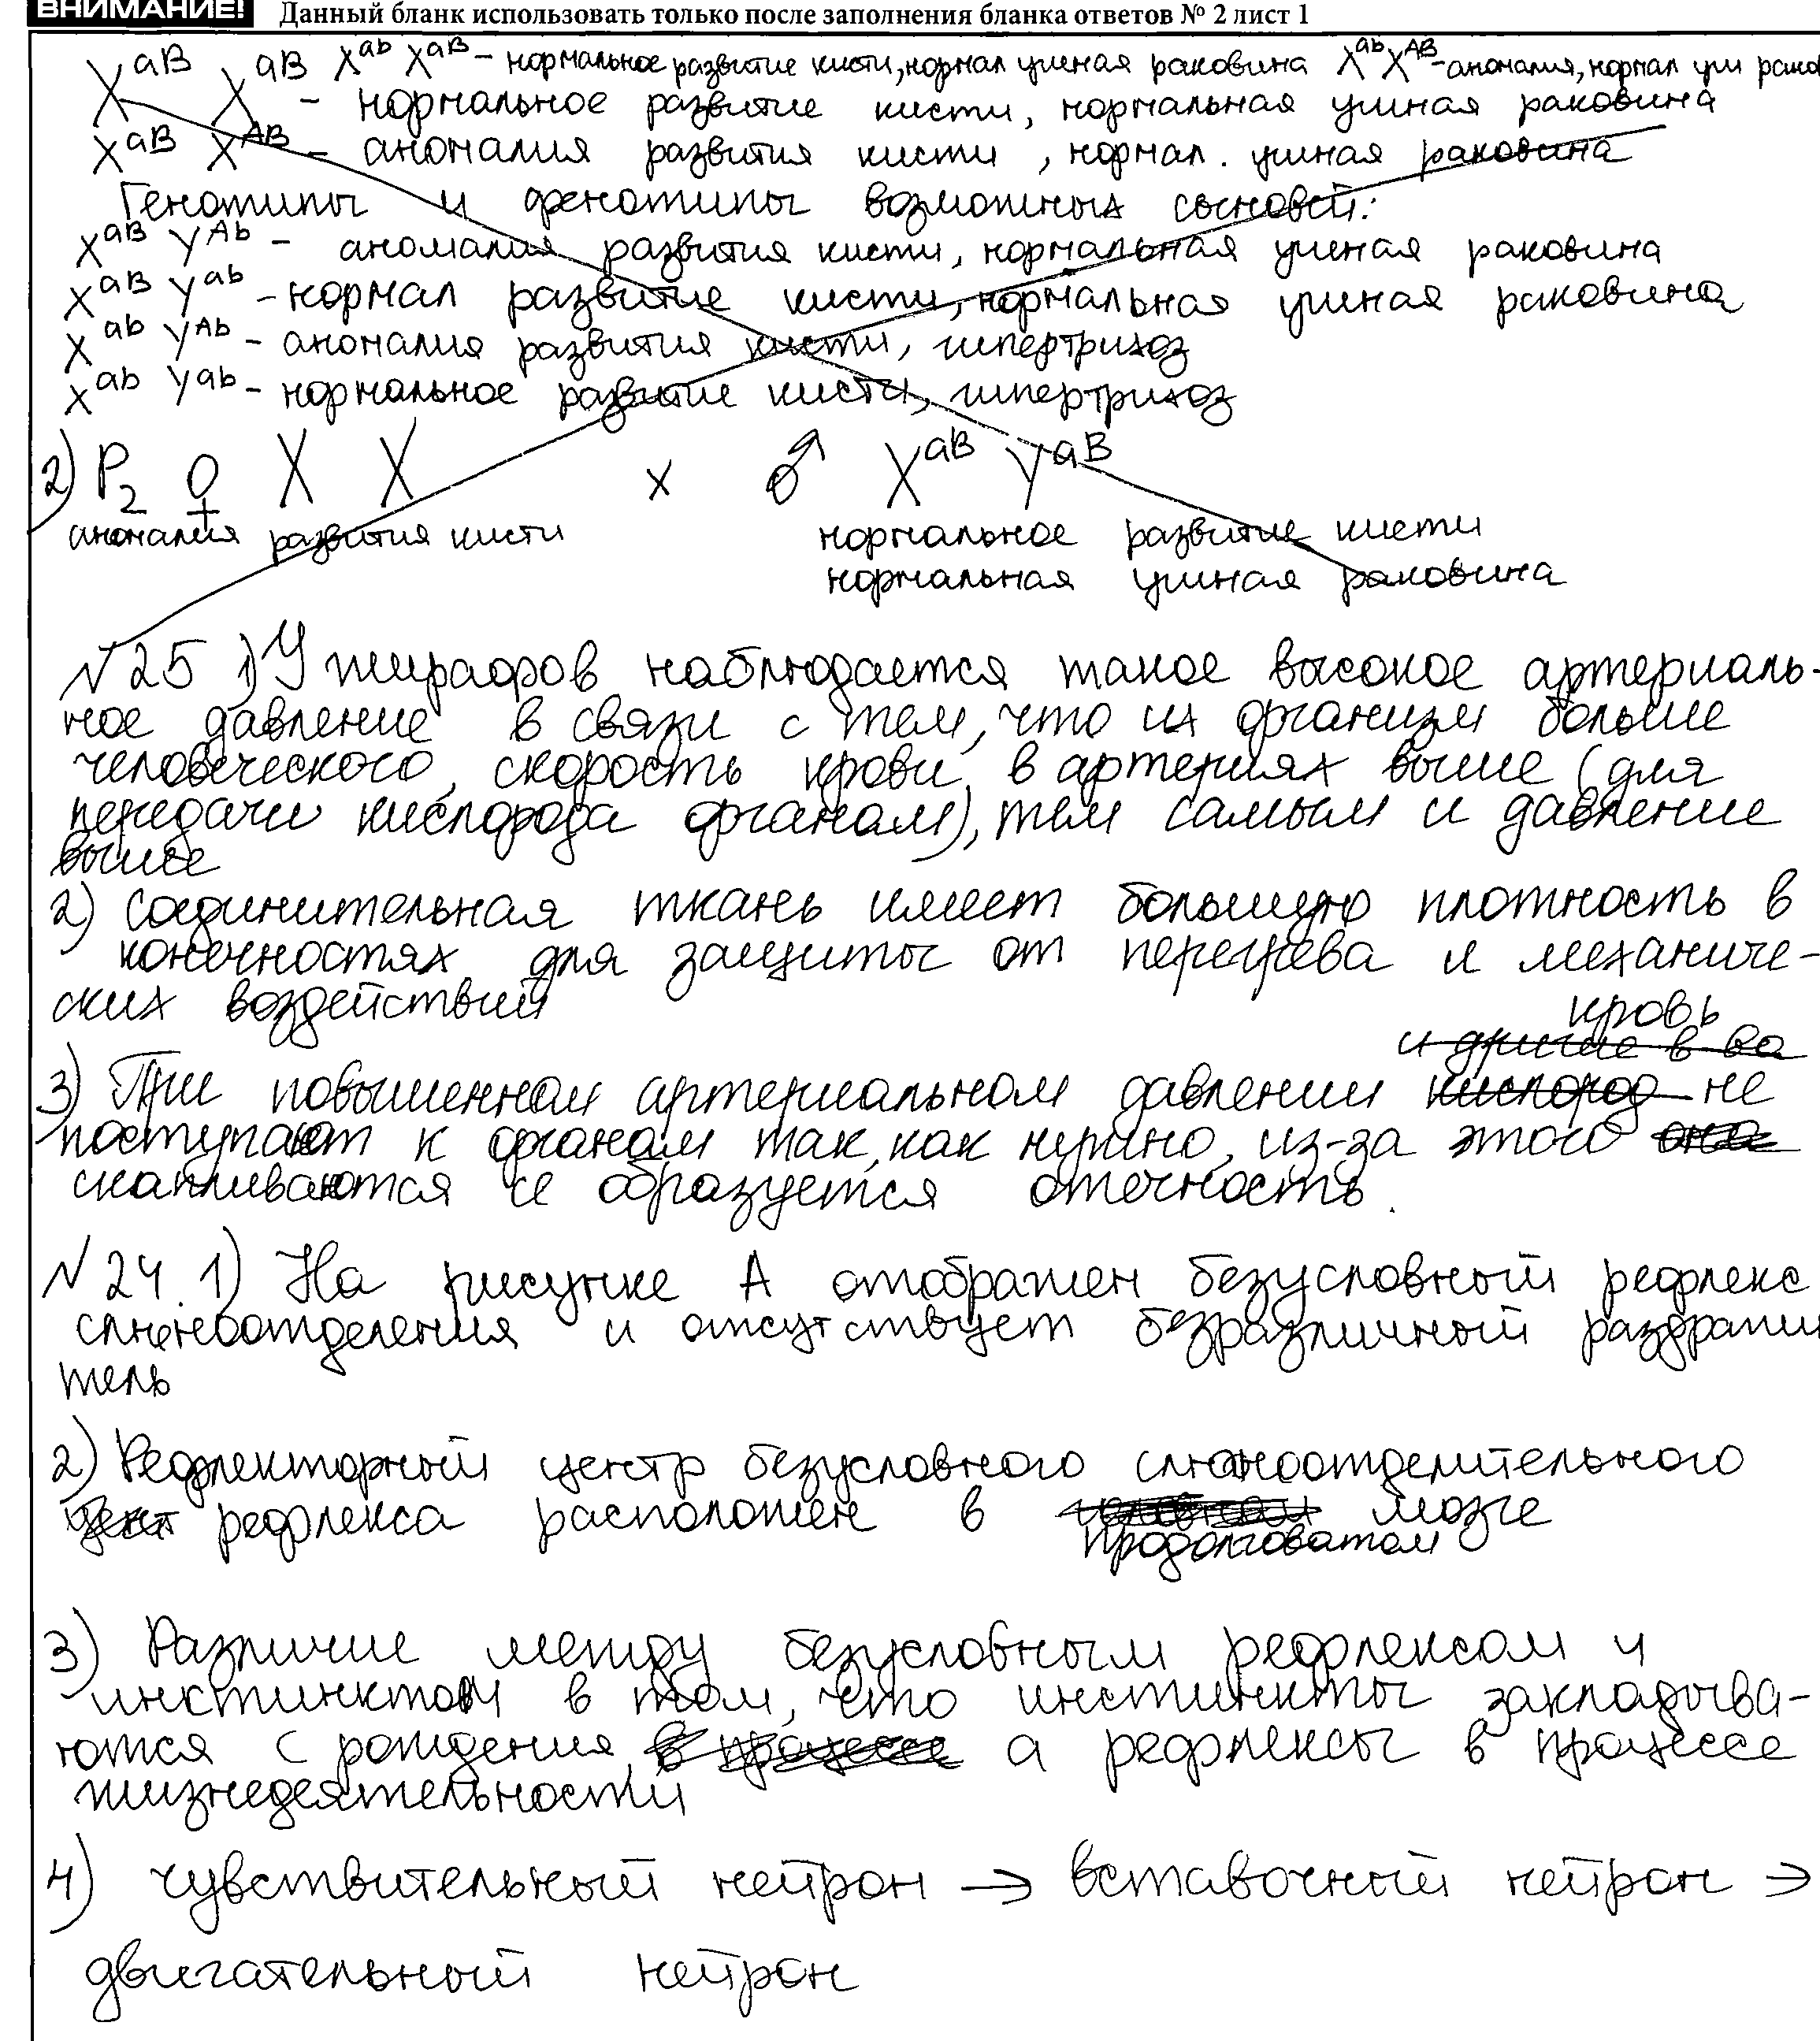 ВНИМАНИЕ! Данный бланк использовать только после заполнения бланка ответов № 2 лист 1
X^ab X^aB – нормальное развитие кисти, нормал ушная раковина X^ab X^AB – аномалия, нормал уш рако
X^aB X^aB – нормальное развитие кисти, нормальная ушная раковина
X^aB X^AB – аномалия развития кисти, нормал. ушная раковина
Генотипы и фенотипы возможных сыновей:
X^aB Y^Ab – аномалия развития кисти, нормальная ушная раковина
X^aB Y^ab – нормал развитие кисти, нормальная ушная раковина
X^ab Y^Ab – аномалия развития кисти, гипертрихоз
X^ab Y^ab – нормальное развитие кисти, гипертрихоз
2) P2 ♀ X X x ♂ X^aB Y^aB
аномалия развития кисти нормальное развитие кисти
нормальная ушная раковина
№25 1) У жирафов наблюдается такое высокое артериаль-
ное давление в связи с тем, что их организм больше
человеческого, скорость крови в артериях выше (для
передачи кислорода органам), тем самым и давление
выше
2) Соединительная ткань имеет большую плотность в
конечностях для защиты от перегрева и механиче-
ских воздействий
кровь
и другие в ва
3) При повышенном артериальном давлении кислород не
поступают к органам так, как нужно, из-за этого она
скапливаются и образуется отечность.
№24. 1) На рисунке А отображен безусловный рефлекс
слюноотделения и отсутствует безразличный раздражи
тель
2) Рефлекторный центр безусловного слюноотделительного
цент рефлекса расположен в головном мозге
продолговатом
3) Различие между безусловным рефлексом и
инстинктом в том, что инстинкты закладыва-
ются с рождения, в процессе а рефлексы в процессе
жизнедеятельности
4) чувствительный нейрон → вставочный нейрон →
двигательный нейрон